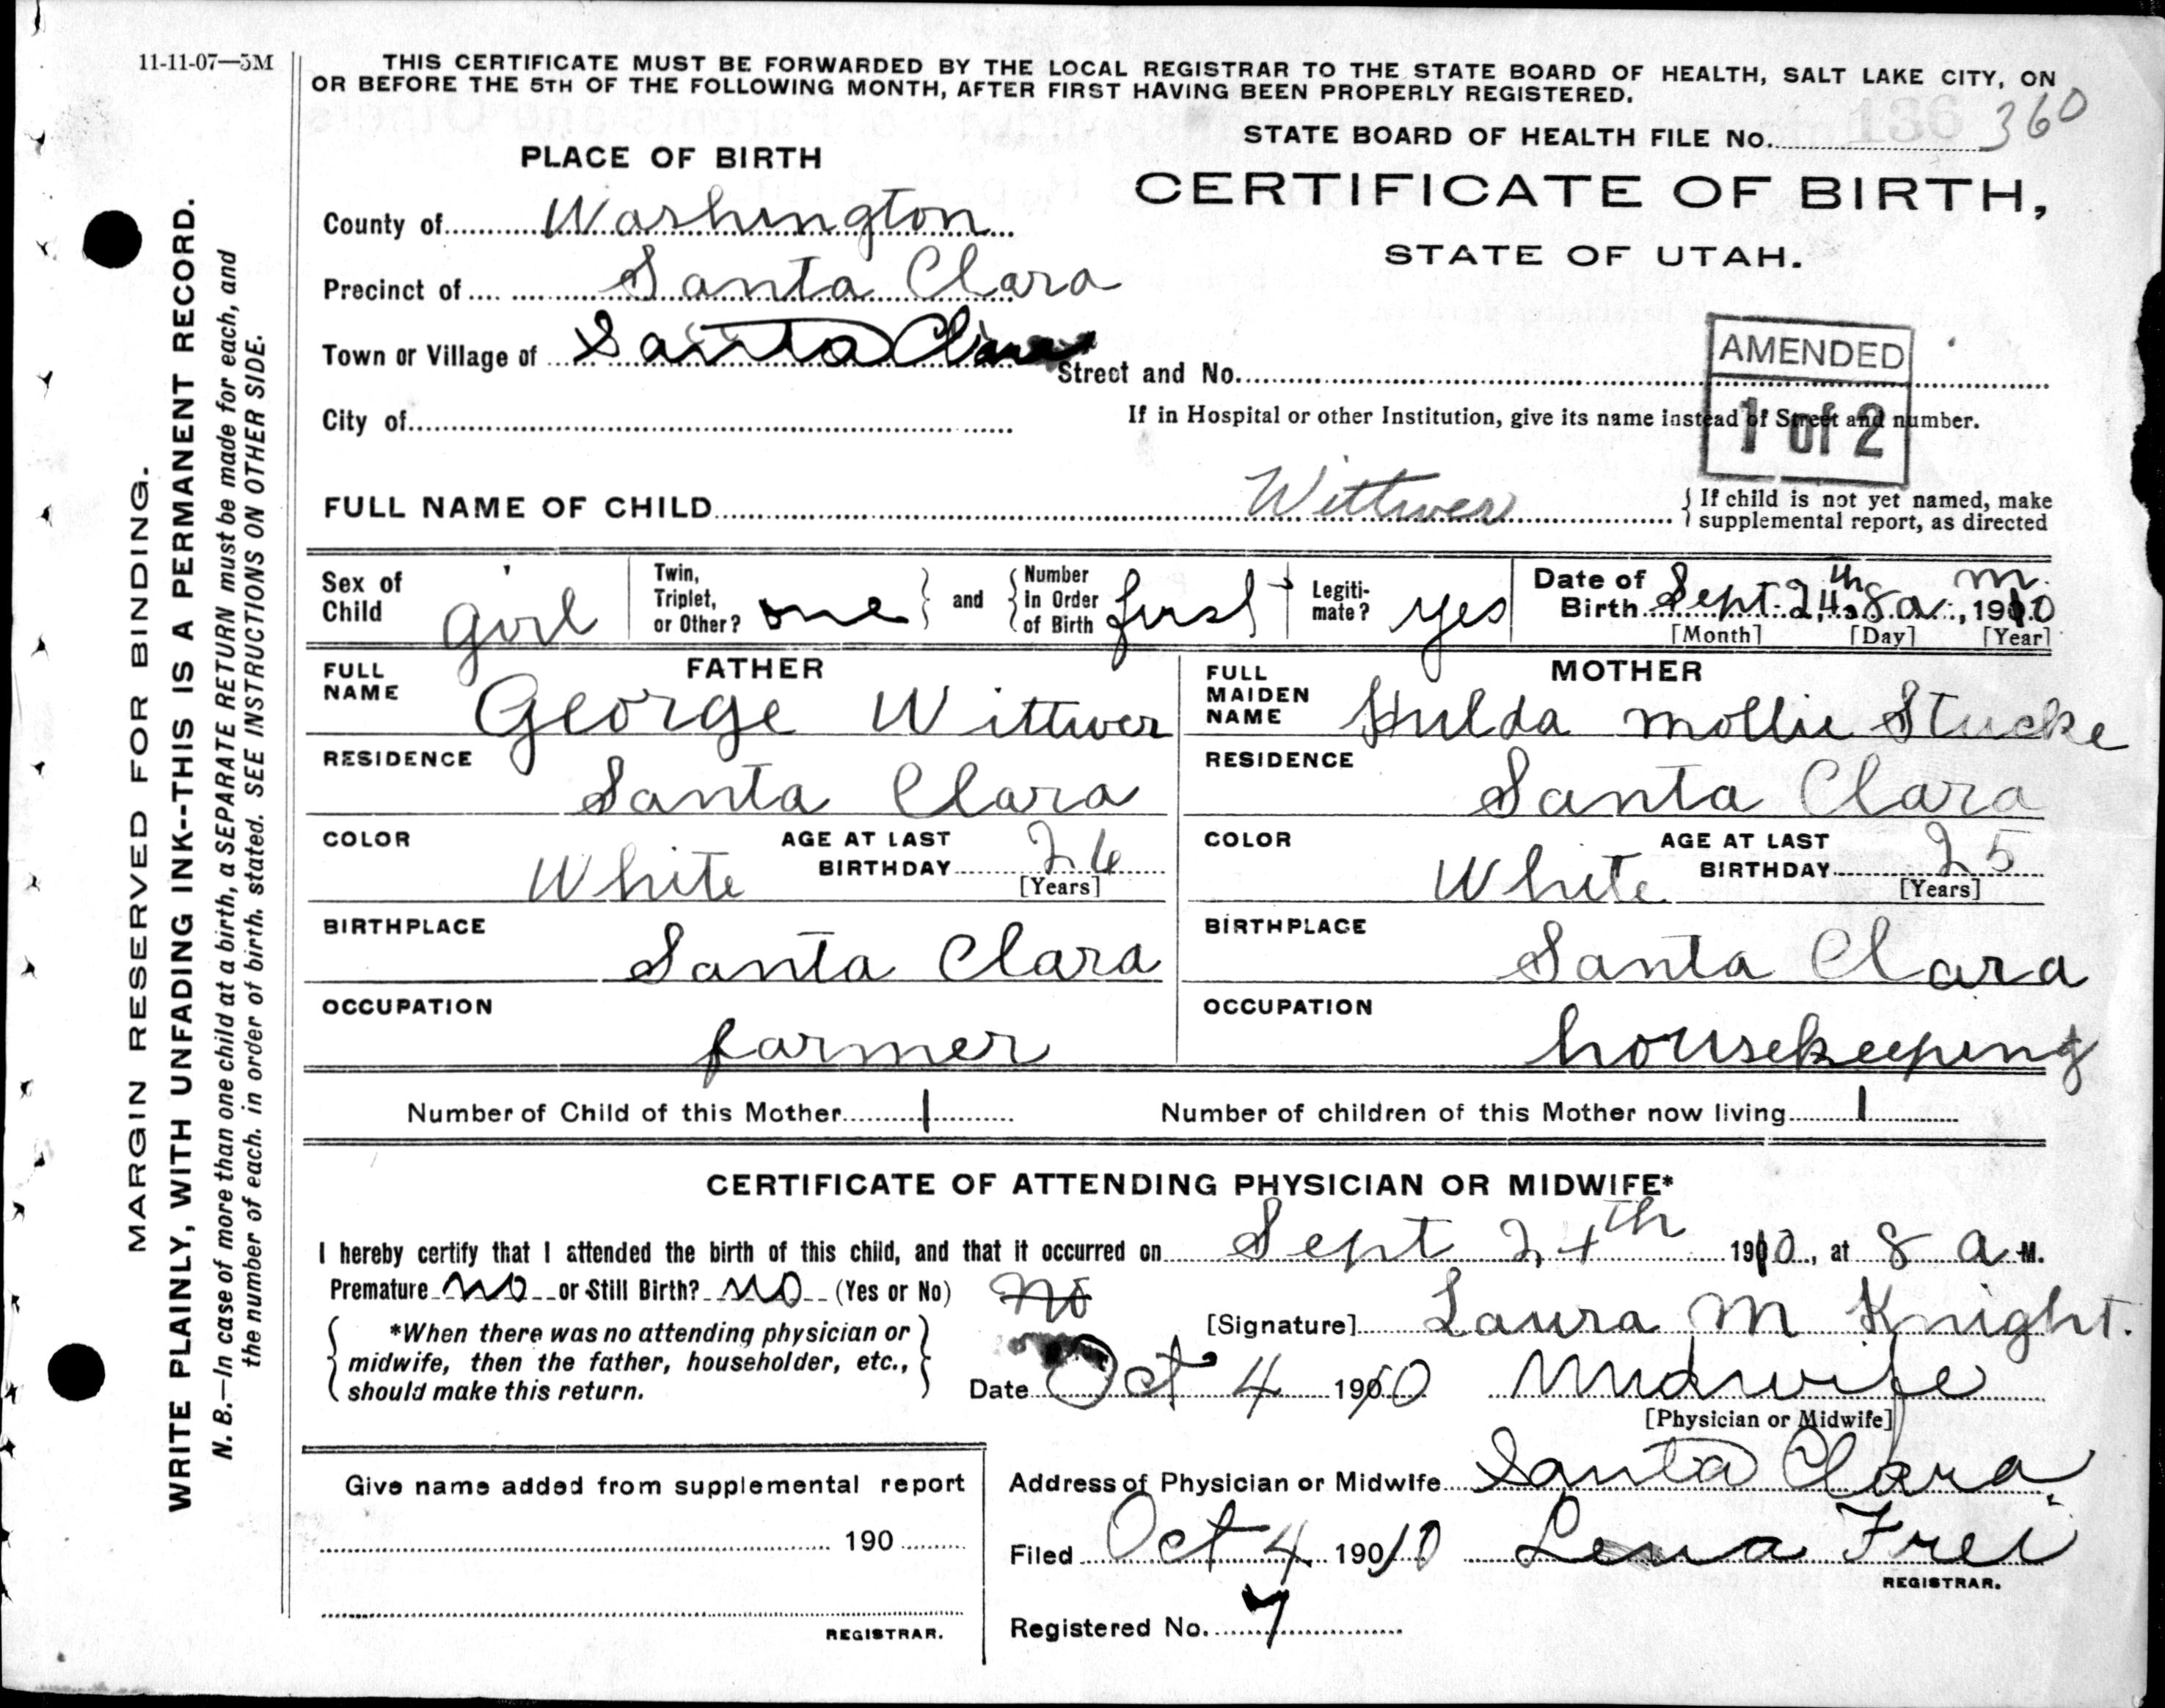 11-11-07—5M
THIS CERTIFICATE MUST BE FORWARDED BY THE LOCAL REGISTRAR TO THE STATE BOARD OF HEALTH, SALT LAKE CITY, ON
OR BEFORE THE 5TH OF THE FOLLOWING MONTH, AFTER FIRST HAVING BEEN PROPERLY REGISTERED.
STATE BOARD OF HEALTH FILE No. 136 360
PLACE OF BIRTH
CERTIFICATE OF BIRTH,
STATE OF UTAH.
County of Washington
Precinct of Santa Clara
Town or Village of Santa Clara
Street and No.
AMENDED
1 of 2
City of
If in Hospital or other Institution, give its name instead of Street and number.
FULL NAME OF CHILD Wittwer
If child is not yet named, make
supplemental report, as directed
Sex of Child girl
Twin, Triplet, or Other? one and Number In Order of Birth first
Legitimate? yes
Date of Birth Sept. 24th 8 a m. 1910
[Month] [Day] [Year]
FATHER
FULL NAME George Wittwer
RESIDENCE Santa Clara
COLOR White AGE AT LAST BIRTHDAY 26 [Years]
BIRTHPLACE Santa Clara
OCCUPATION farmer
MOTHER
FULL MAIDEN NAME Hulda Mollie Stucke
RESIDENCE Santa Clara
COLOR White AGE AT LAST BIRTHDAY 25 [Years]
BIRTHPLACE Santa Clara
OCCUPATION housekeeping
Number of Child of this Mother 1 Number of children of this Mother now living 1
CERTIFICATE OF ATTENDING PHYSICIAN OR MIDWIFE*
I hereby certify that I attended the birth of this child, and that it occurred on Sept 24th 1910, at 8 a M.
Premature no or Still Birth? no (Yes or No) no
*When there was no attending physician or
midwife, then the father, householder, etc.,
should make this return.
[Signature] Laura M Knight.
Date Oct 4 1910 Midwife
[Physician or Midwife]
Address of Physician or Midwife Santa Clara.
Filed Oct 4 1910 Lena Frei
REGISTRAR.
Registered No. 7
Give name added from supplemental report
190
REGISTRAR.
MARGIN RESERVED FOR BINDING.
WRITE PLAINLY, WITH UNFADING INK--THIS IS A PERMANENT RECORD.
N. B.—In case of more than one child at a birth, a SEPARATE RETURN must be made for each, and
the number of each, in order of birth, stated. SEE INSTRUCTIONS ON OTHER SIDE.